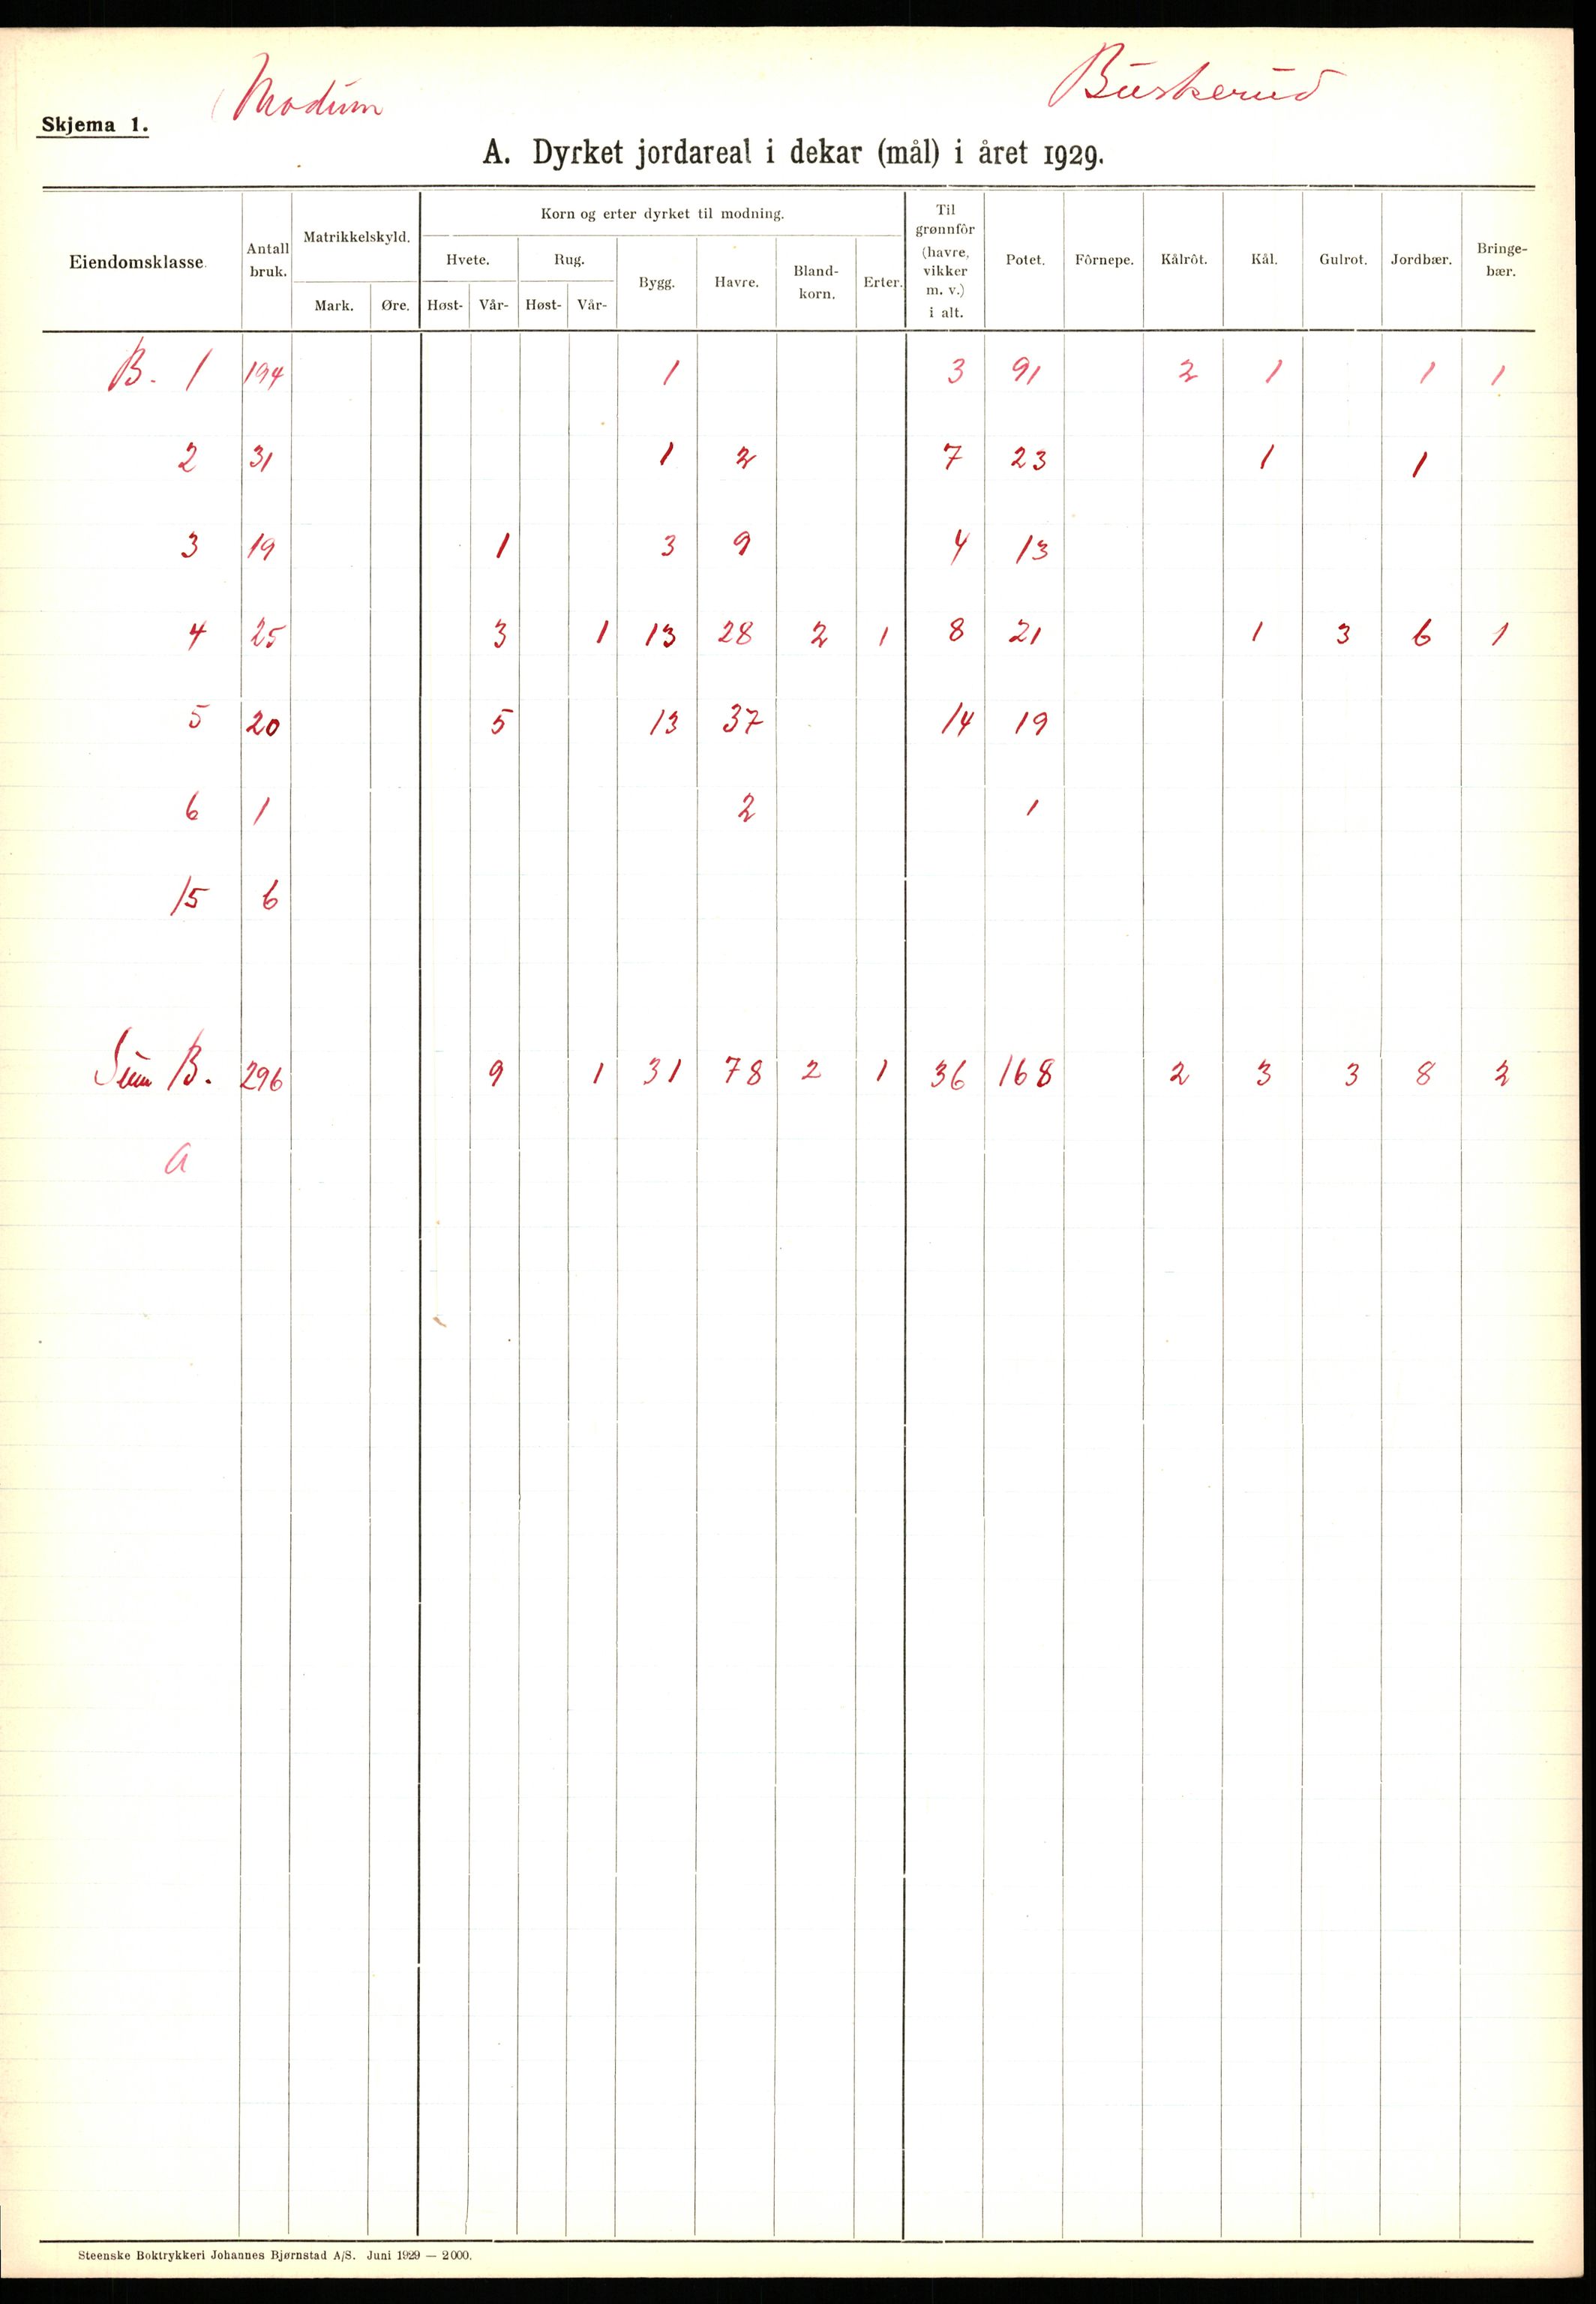 Modum Buskerud
Skjema 1.
A. Dyrket jordareal i dekar (mål) i året 1929.
Eiendomsklasse. Antall bruk. Matrikkelskyld. Korn og erter dyrket til modning. Til grønnfôr (havre, vikker m. v.) i alt. Potet. Fôrnepe. Kålrôt. Kål. Gulrot. Jordbær. Bringe- bær.
Mark. Øre. Hvete. Rug. Bygg. Havre. Bland- korn. Erter.
Høst- Vår- Høst- Vår-
B. 1 194 1 3 91 2 1 1 1
2 31 1 2 7 23 1 1
3 19 1 3 9 4 13
4 25 3 1 13 28 2 1 8 21 1 3 6 1
5 20 5 13 37 14 19
6 1 2 1
15 6
Sum B. 296 9 1 31 78 2 1 36 168 2 3 3 8 2
a
Steenske Boktrykkeri Johannes Bjørnstad A/S. Juni 1929 — 2000.